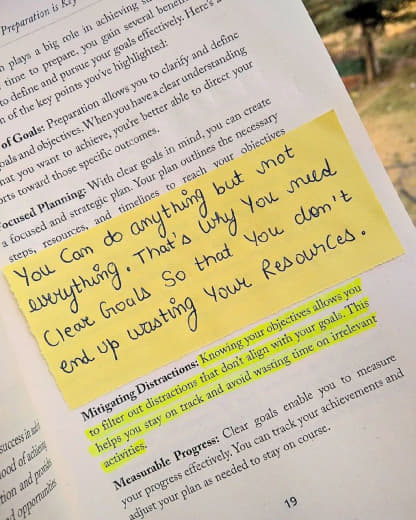 Preparation is Key
plays a big role in achieving
time to prepare, you gain several benefits
to define and pursue your goals effectively. Here's a
of the key points you've highlighted:
of Goals: Preparation allows you to clarify and define
goals and objectives. When you have a clear understanding
what you want to achieve, you're better able to direct your
efforts toward those specific outcomes.
Focused Planning: With clear goals in mind, you can create
a focused and strategic plan. Your plan outlines the necessary
steps, resources, and timelines to reach your objectives
You Can do anything but not
everything. That's Why You need
Clear Goals So that You don't
end up wasting Your Resources.
Mitigating Distractions: Knowing your objectives allows you
to filter out distractions that don't align with your goals. This
helps you stay on track and avoid wasting time on irrelevant
activities.
Measurable Progress: Clear goals enable you to measure
your progress effectively. You can track your achievements and
adjust your plan as needed to stay on course.
19
success in
of
tion and
opportunities